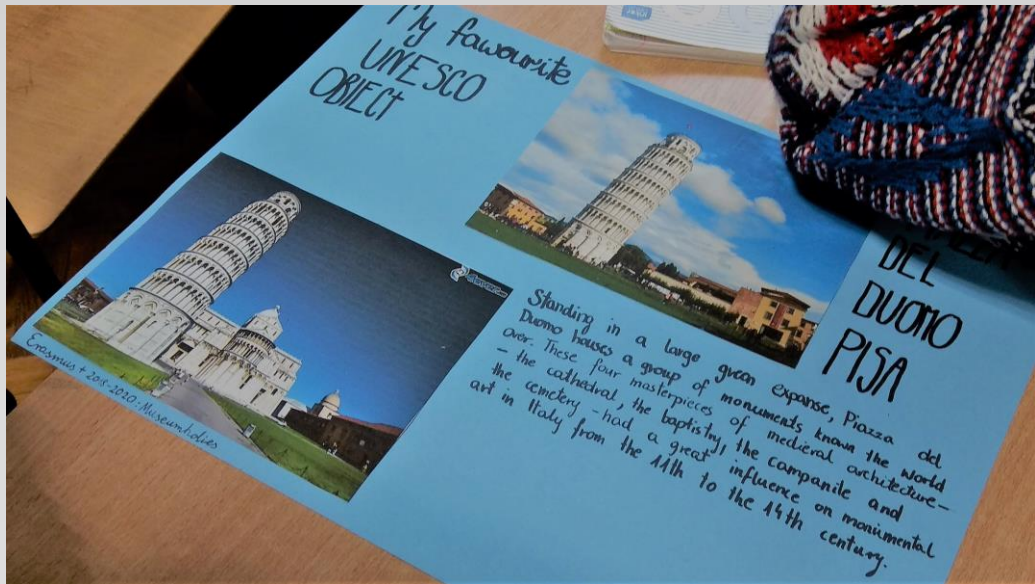 My fawourite
UNESCO
OBIECt
DEL
DUOMO
PISA
Standing in a large green expanse, Piazza del
Duomo houses a group of monuments known the world
over. These four masterpieces of medieval architecture-
- the cathedral, the baptistry, the campanile and
the cemetery - had a great influence on monumental
art in Italy from the 11th to the 14th century.
Erasmus + 2018-2020: Museumholics